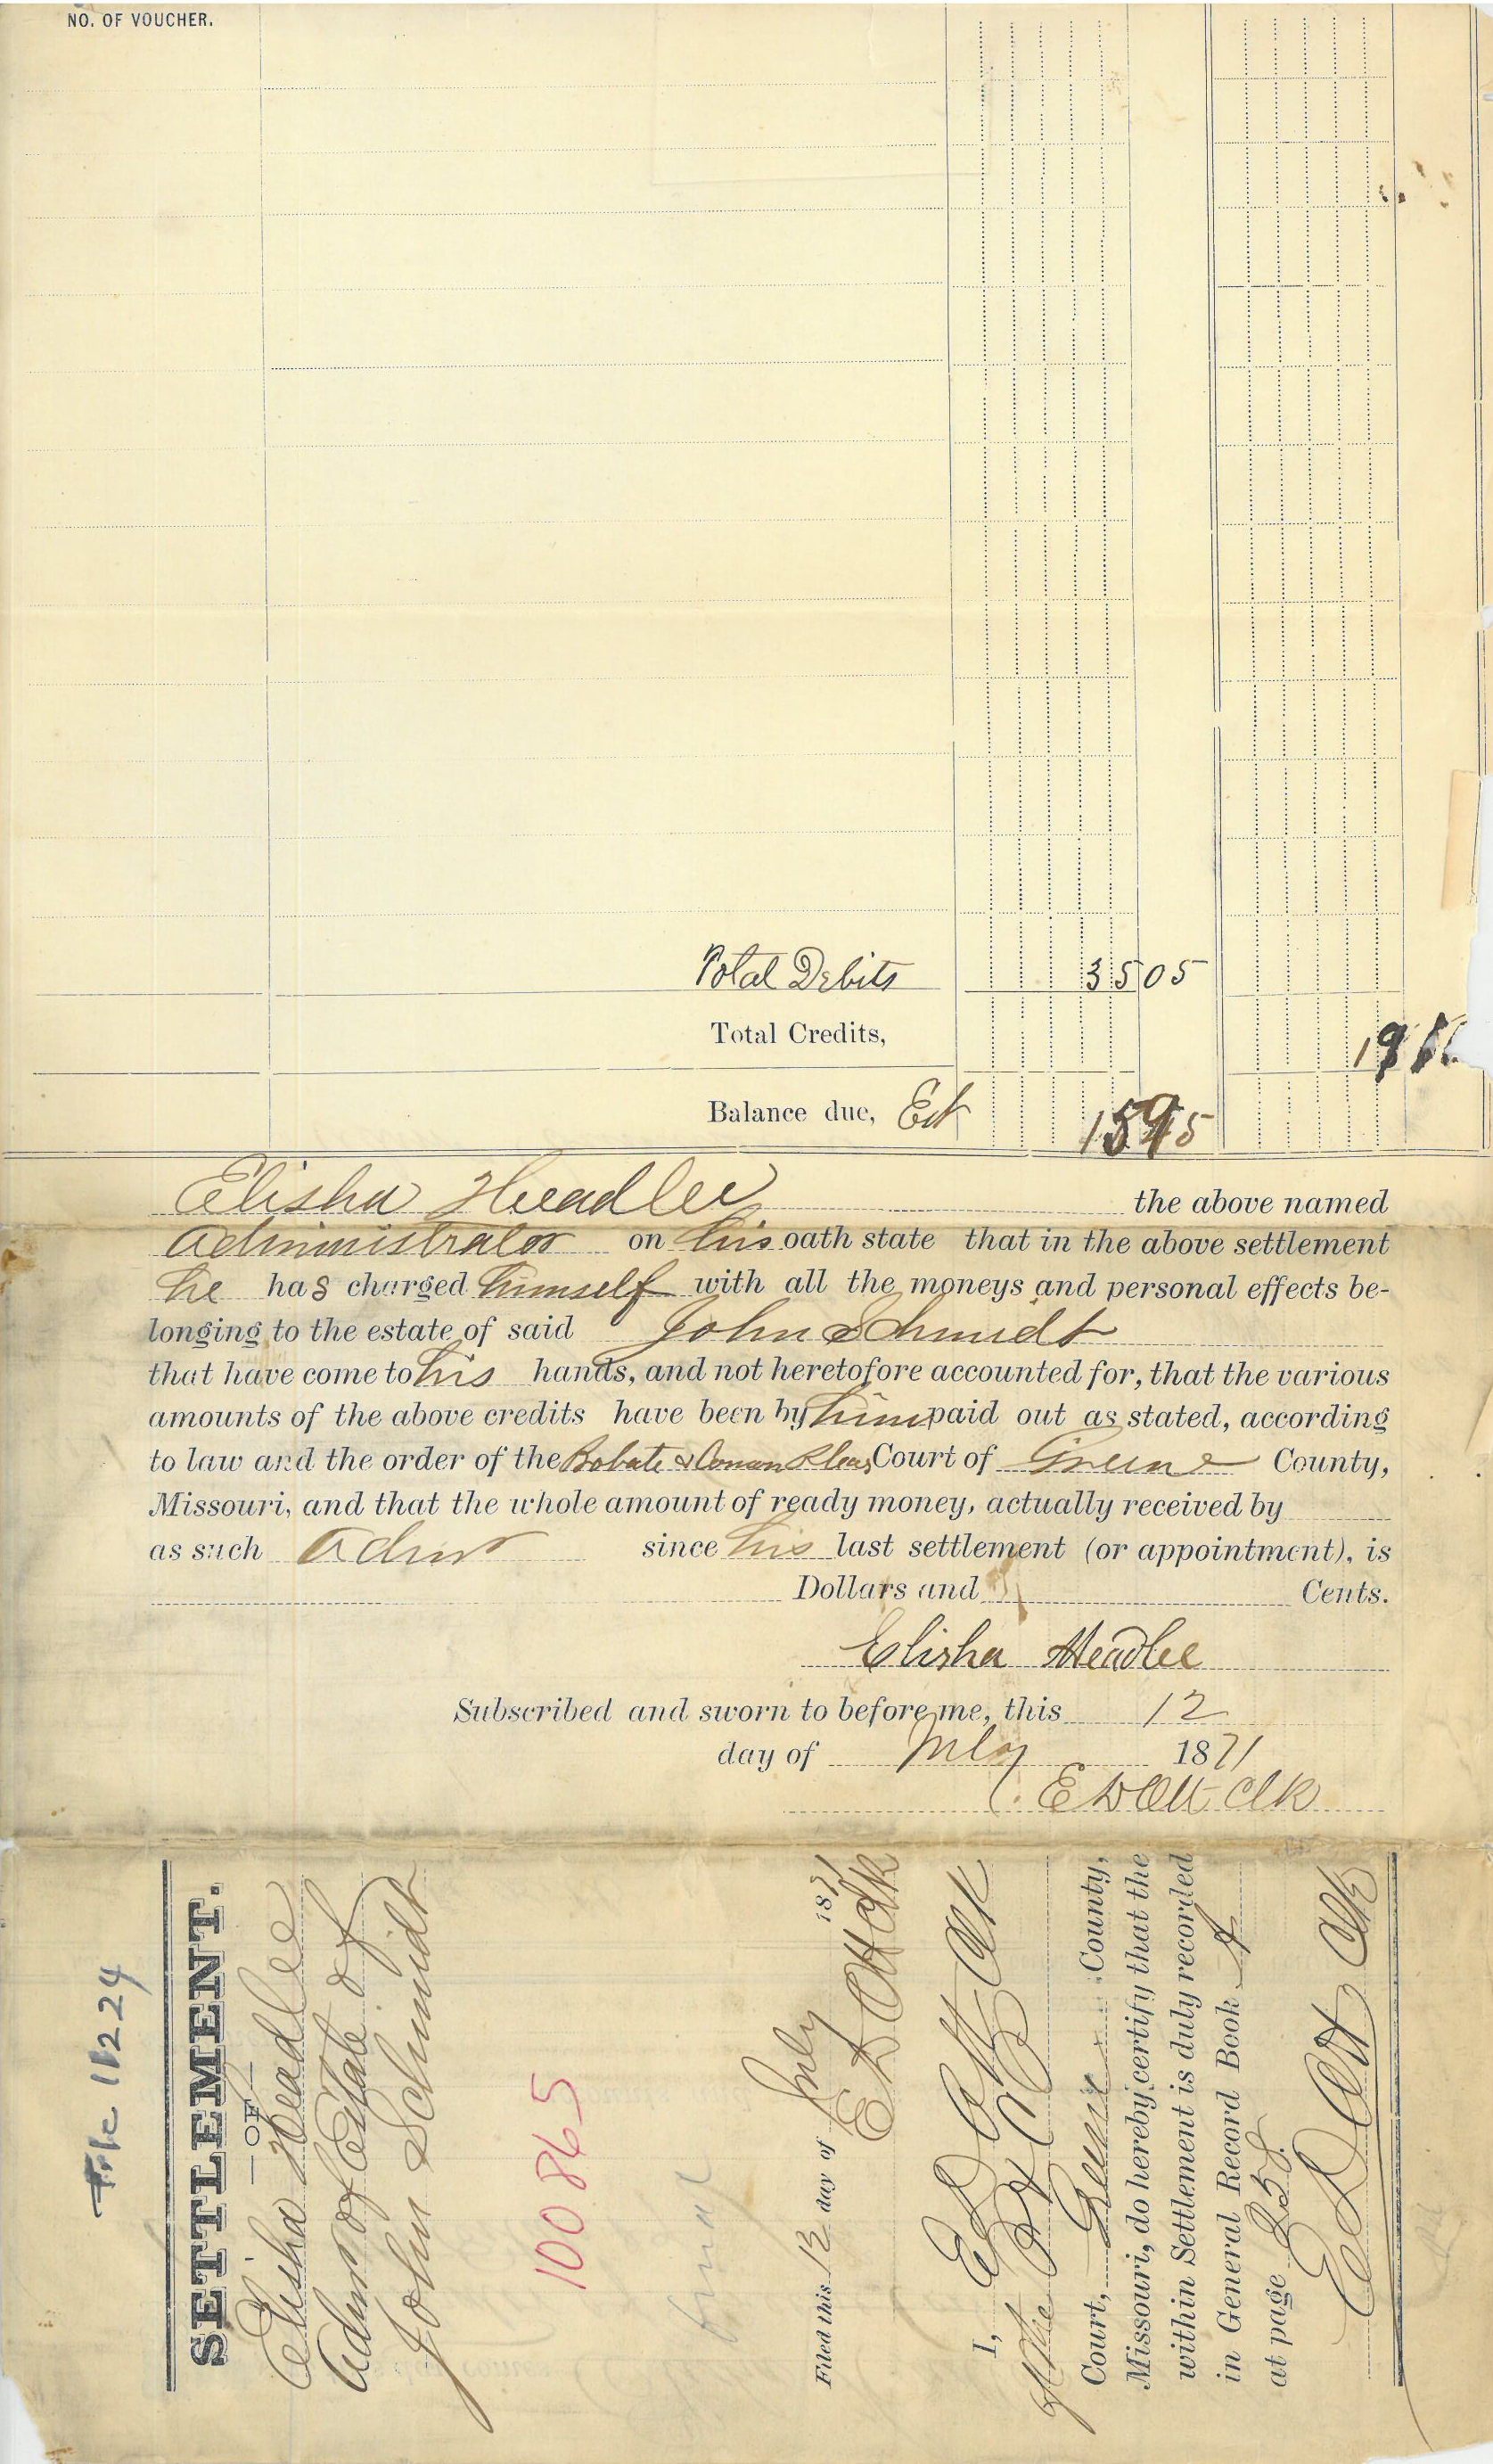 NO. OF VOUCHER.
Total Debits 35 05
Total Credits,
Balance due, Est
Elisha Headlee the above named
Administrator on his oath state that in the above settlement
he has charged himself with all the moneys and personal effects be-
longing to the estate of said John Schmidt
that have come to his hands, and not heretofore accounted for, that the various
amounts of the above credits have been by him paid out as stated, according
to law and the order of the Probate & Common Pleas Court of Greene County,
Missouri, and that the whole amount of ready money, actually received by
as such Admr since his last settlement (or appointment), is
Dollars and Cents.
Elisha Headlee
Subscribed and sworn to before me, this 12
day of July 1871
E D Ott Clk
File 11224
SETTLEMENT.
— OF —
Elisha Headlee
Admr of Estate of
John Schmidt
10086 5
final
Filed this 12 day of July 1871
E D Ott Clk
I, E D Ott Clk
of the P & C P
Court, Greene County,
Missouri, do hereby certify that the
within Settlement is duly recorded
in General Record Book A
at page 258.
E D Ott Clk